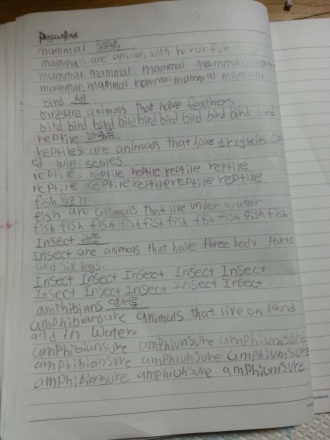 mammal 포유류
mammals are animals with hair or fur
mammal mammal mammal mammal
mammal mammal mammal mammal mammal
bird 새
birds are animals that have feathers
bird bird bird bird bird bird bird bird bird bird
reptile 파충류
reptiles are animals that have dry skin
ed with scales
reptile reptile reptile reptile reptile
reptile reptile reptile reptile reptile
fish 물고기
fish are animals that live under water
fish fish fish fish fish fish fish fish fish fish
Insect 곤충
Insect are animals that have three body parts
and six legs.
Insect Insect Insect Insect Insect
Insect Insect Insect Insect Insect
amphibians 양서류
amphibiansure animals that live on land
and in water
amphibiansure amphiunsure amphiunisure
amphibiansure amphiunsure amphiunisure
amphibiansure amphiunsure amphiunisure